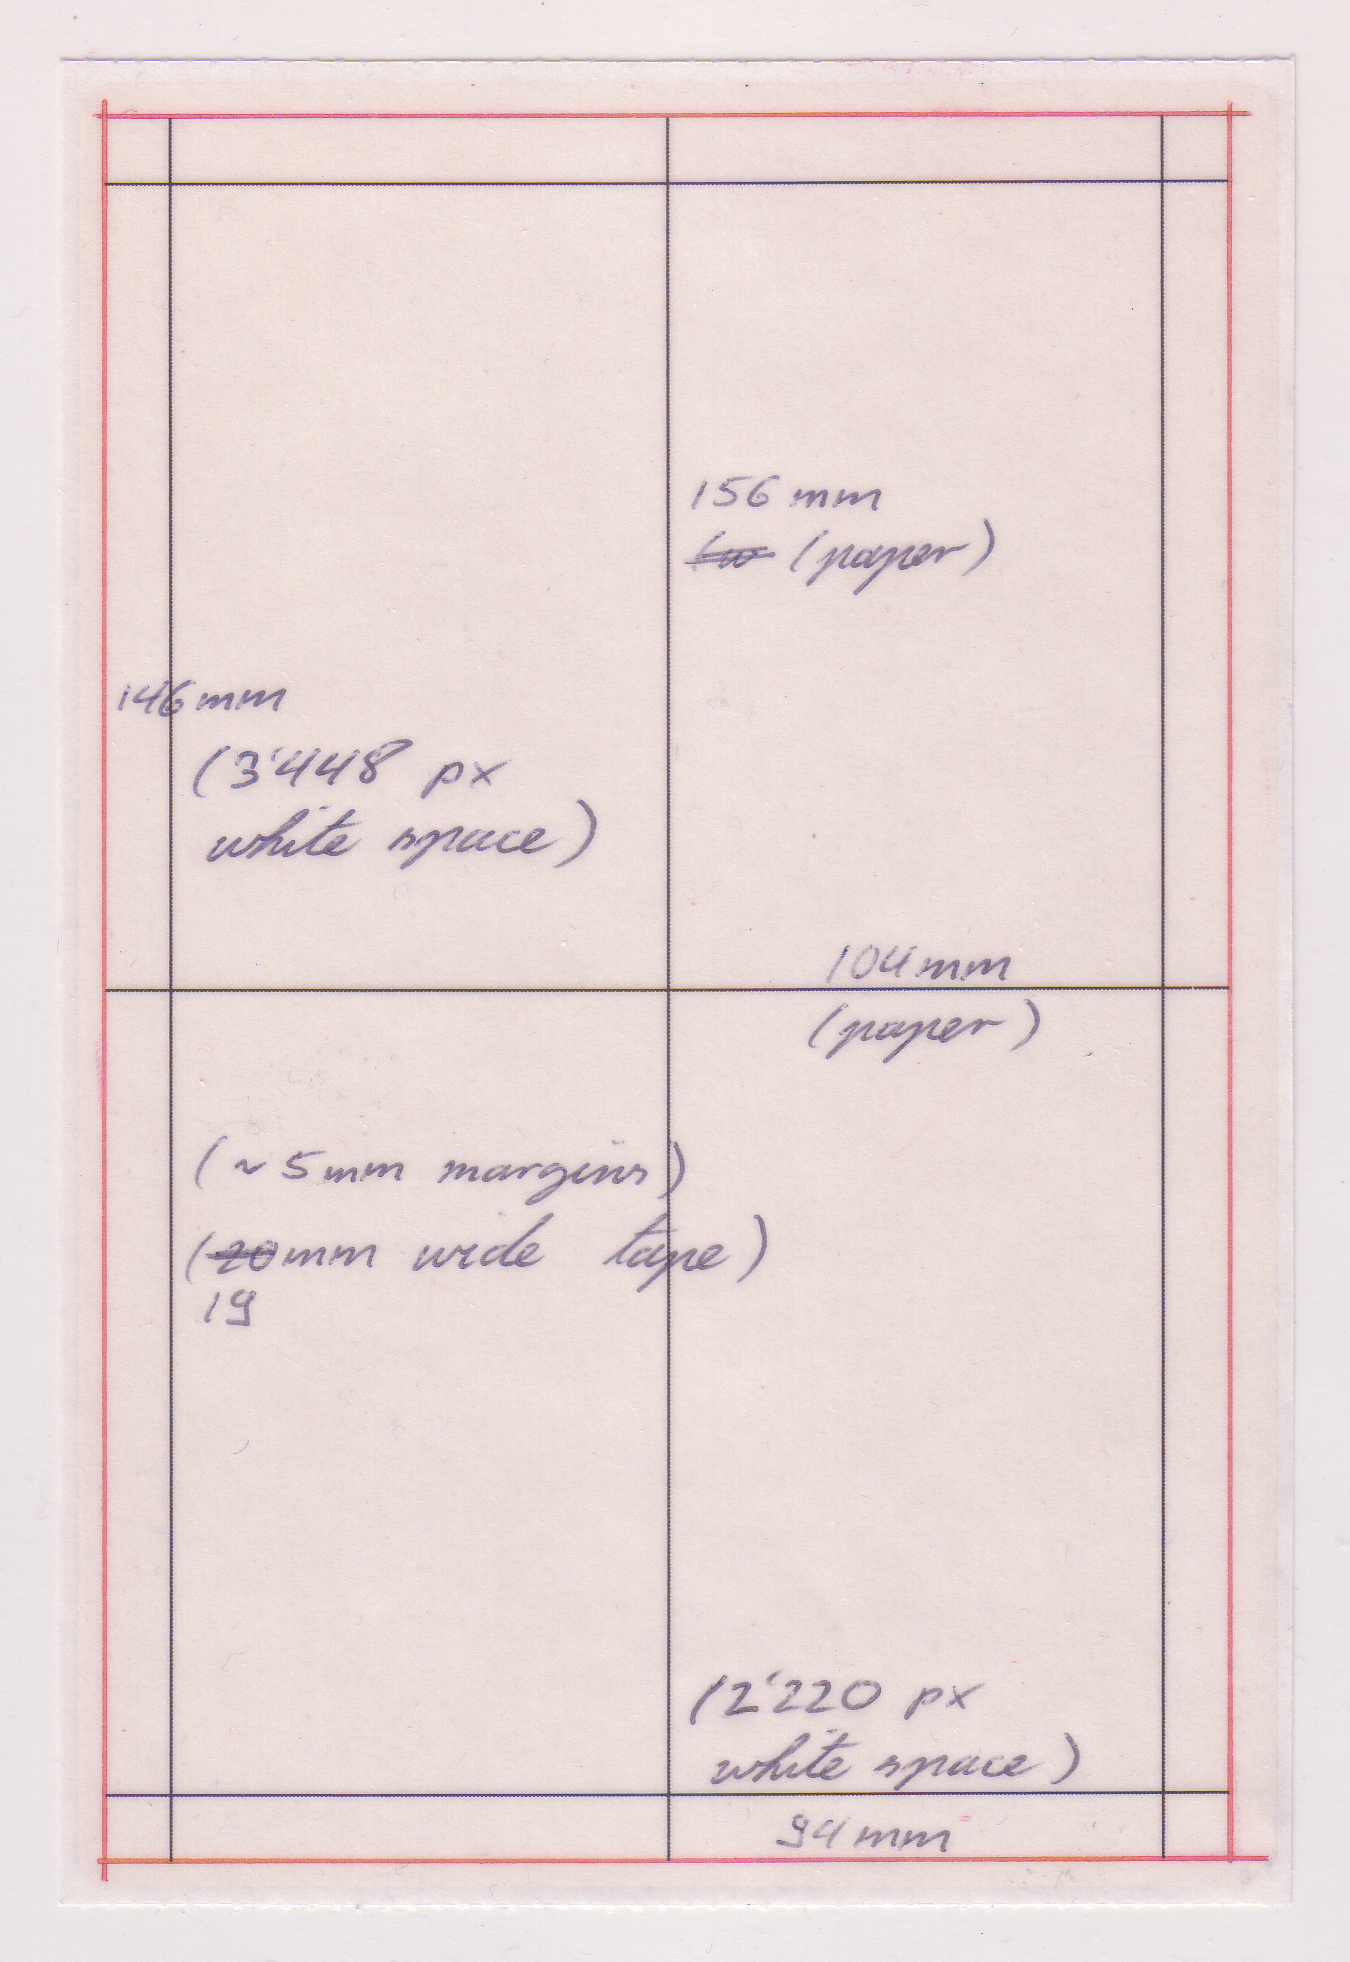 156 mm
(paper)
146 mm
(3'448 px
white space)
104 mm
(paper)
(~ 5 mm margins)
(20mm wide tape)
19
(2'220 px
white space)
94 mm